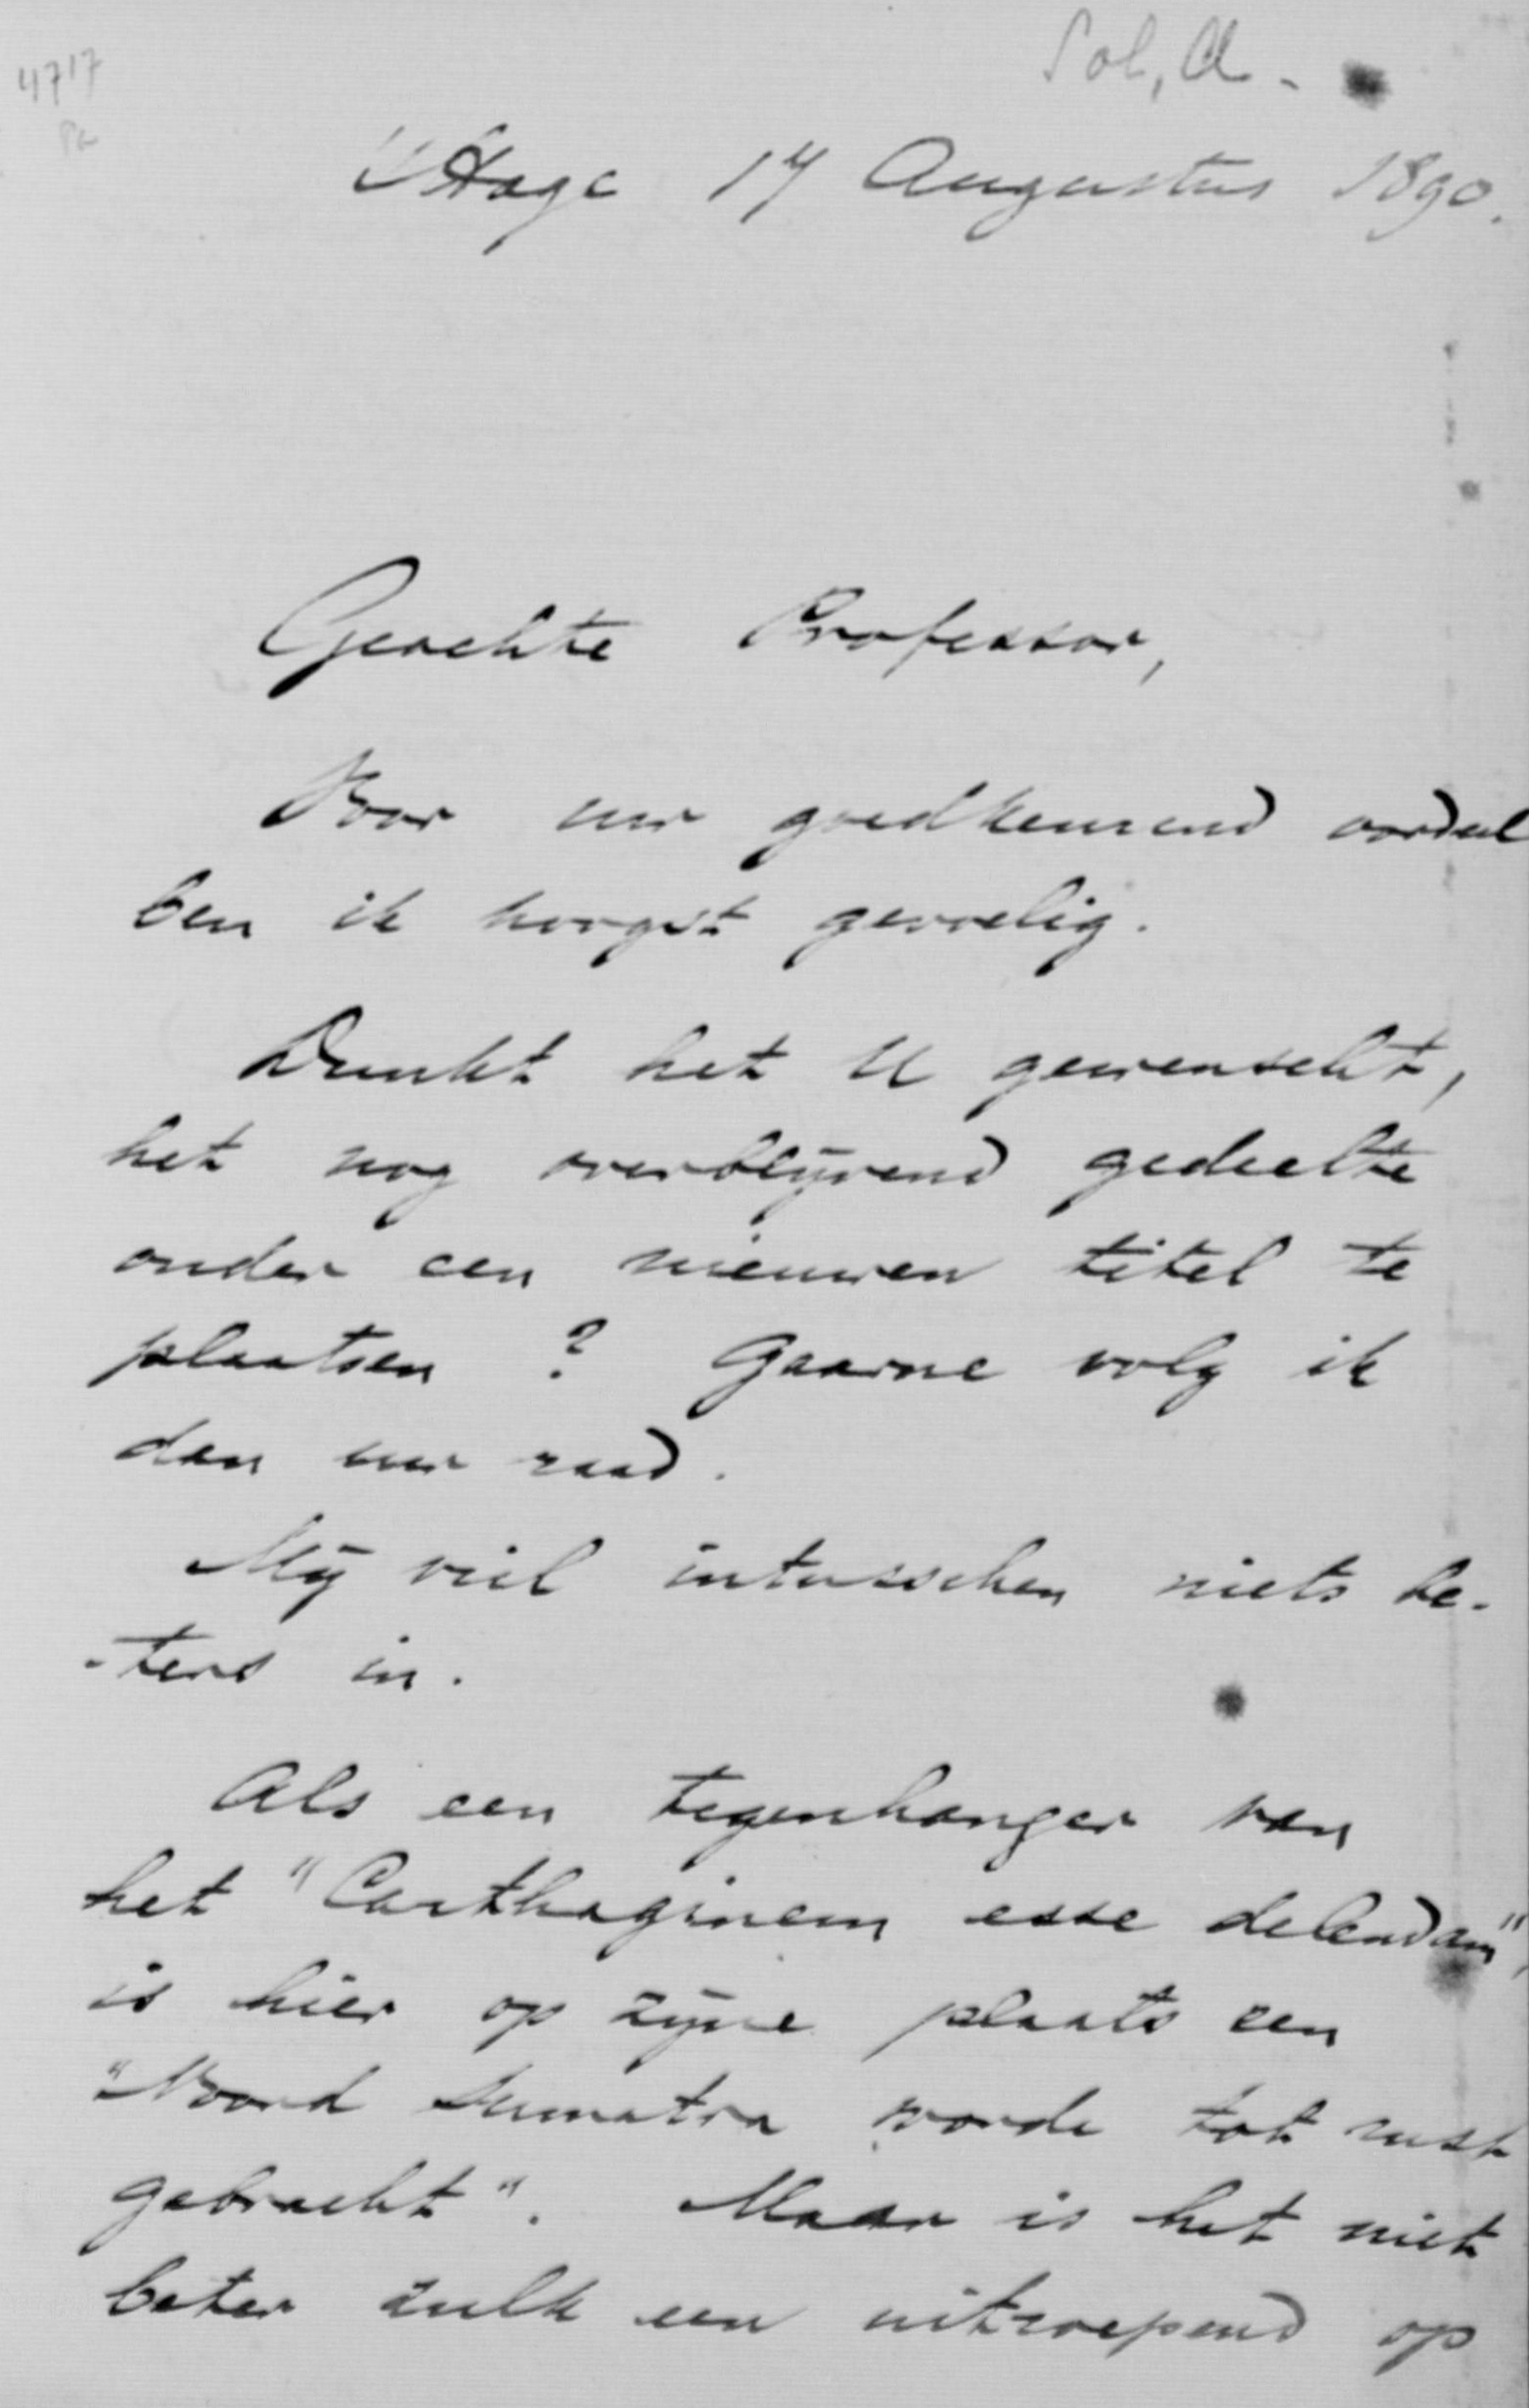 4717
Pk
Sol, A.
's Hage 17 Augustus 1890.
Geachte Professor,
Voor uw goedkeurend oordeel
ben ik hoogst gevoelig.
Dunkt het U gewenscht,
het nog overblijvend gedeelte
onder een nieuwen titel te
plaatsen? Gaarne volg ik
dan uw raad.
Mij viel intusschen niets be-
-ters in.
Als een tegenhanger van
het "Carthaginem esse delendam",
is hier op zijne plaats een
"Noord Sumatra worde tot rust
gebracht". Maar is het niet
beter zulk een uitroepend op